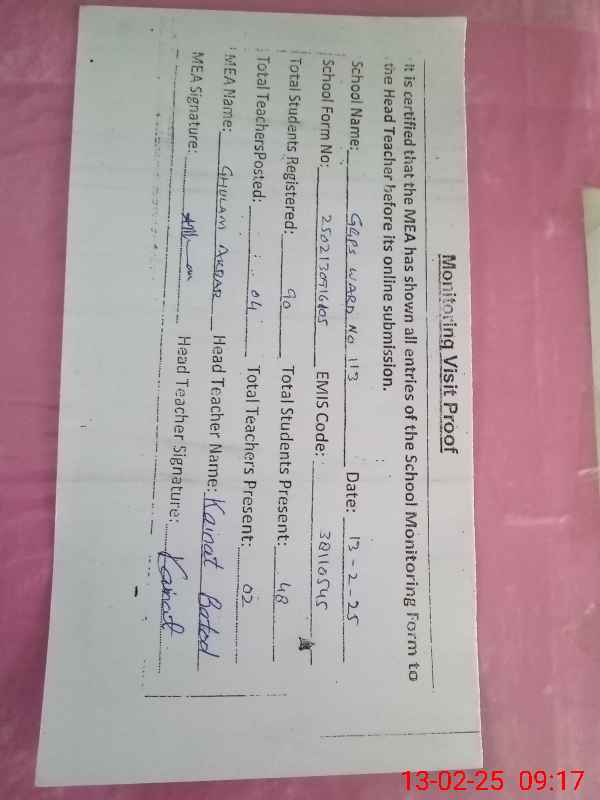 Monitoring Visit Proof
It is certified that the MEA has shown all entries of the School Monitoring Form to
the Head Teacher before its online submission.
School Name: GGPS WARD NO 113 Date: 13-2-25
School Form No: 2502130916105 EMIS Code: 38110545
Total Students Registered: 90 Total Students Present: 48
Total TeachersPosted: 04 Total Teachers Present: 02
MEA Name: GHULAM AKBAR Head Teacher Name: Kainat Batool
MEA Signature: Head Teacher Signature: Kainat
13-02-25 09:17